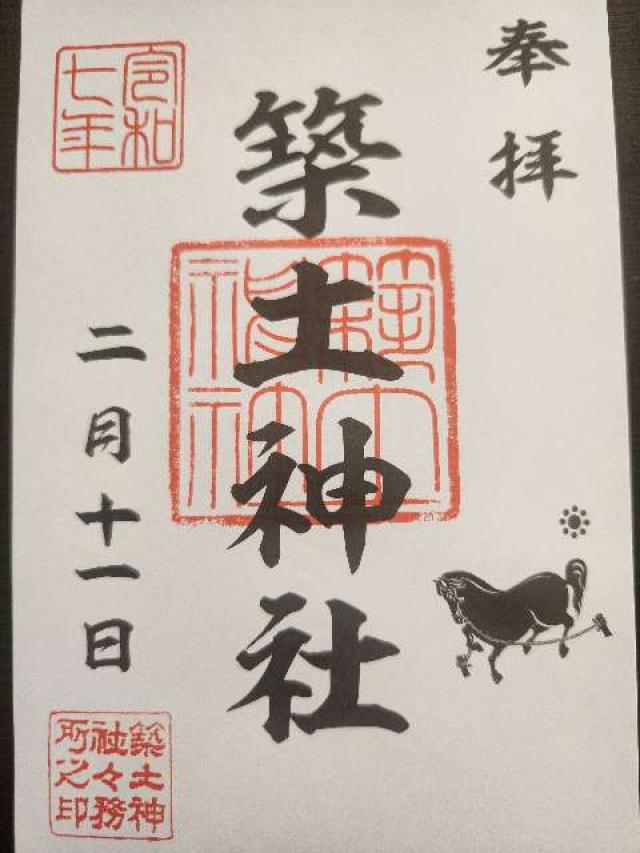 奉拝
築土神社
令和
七年
二月十一日
築土神
社々務
所之印